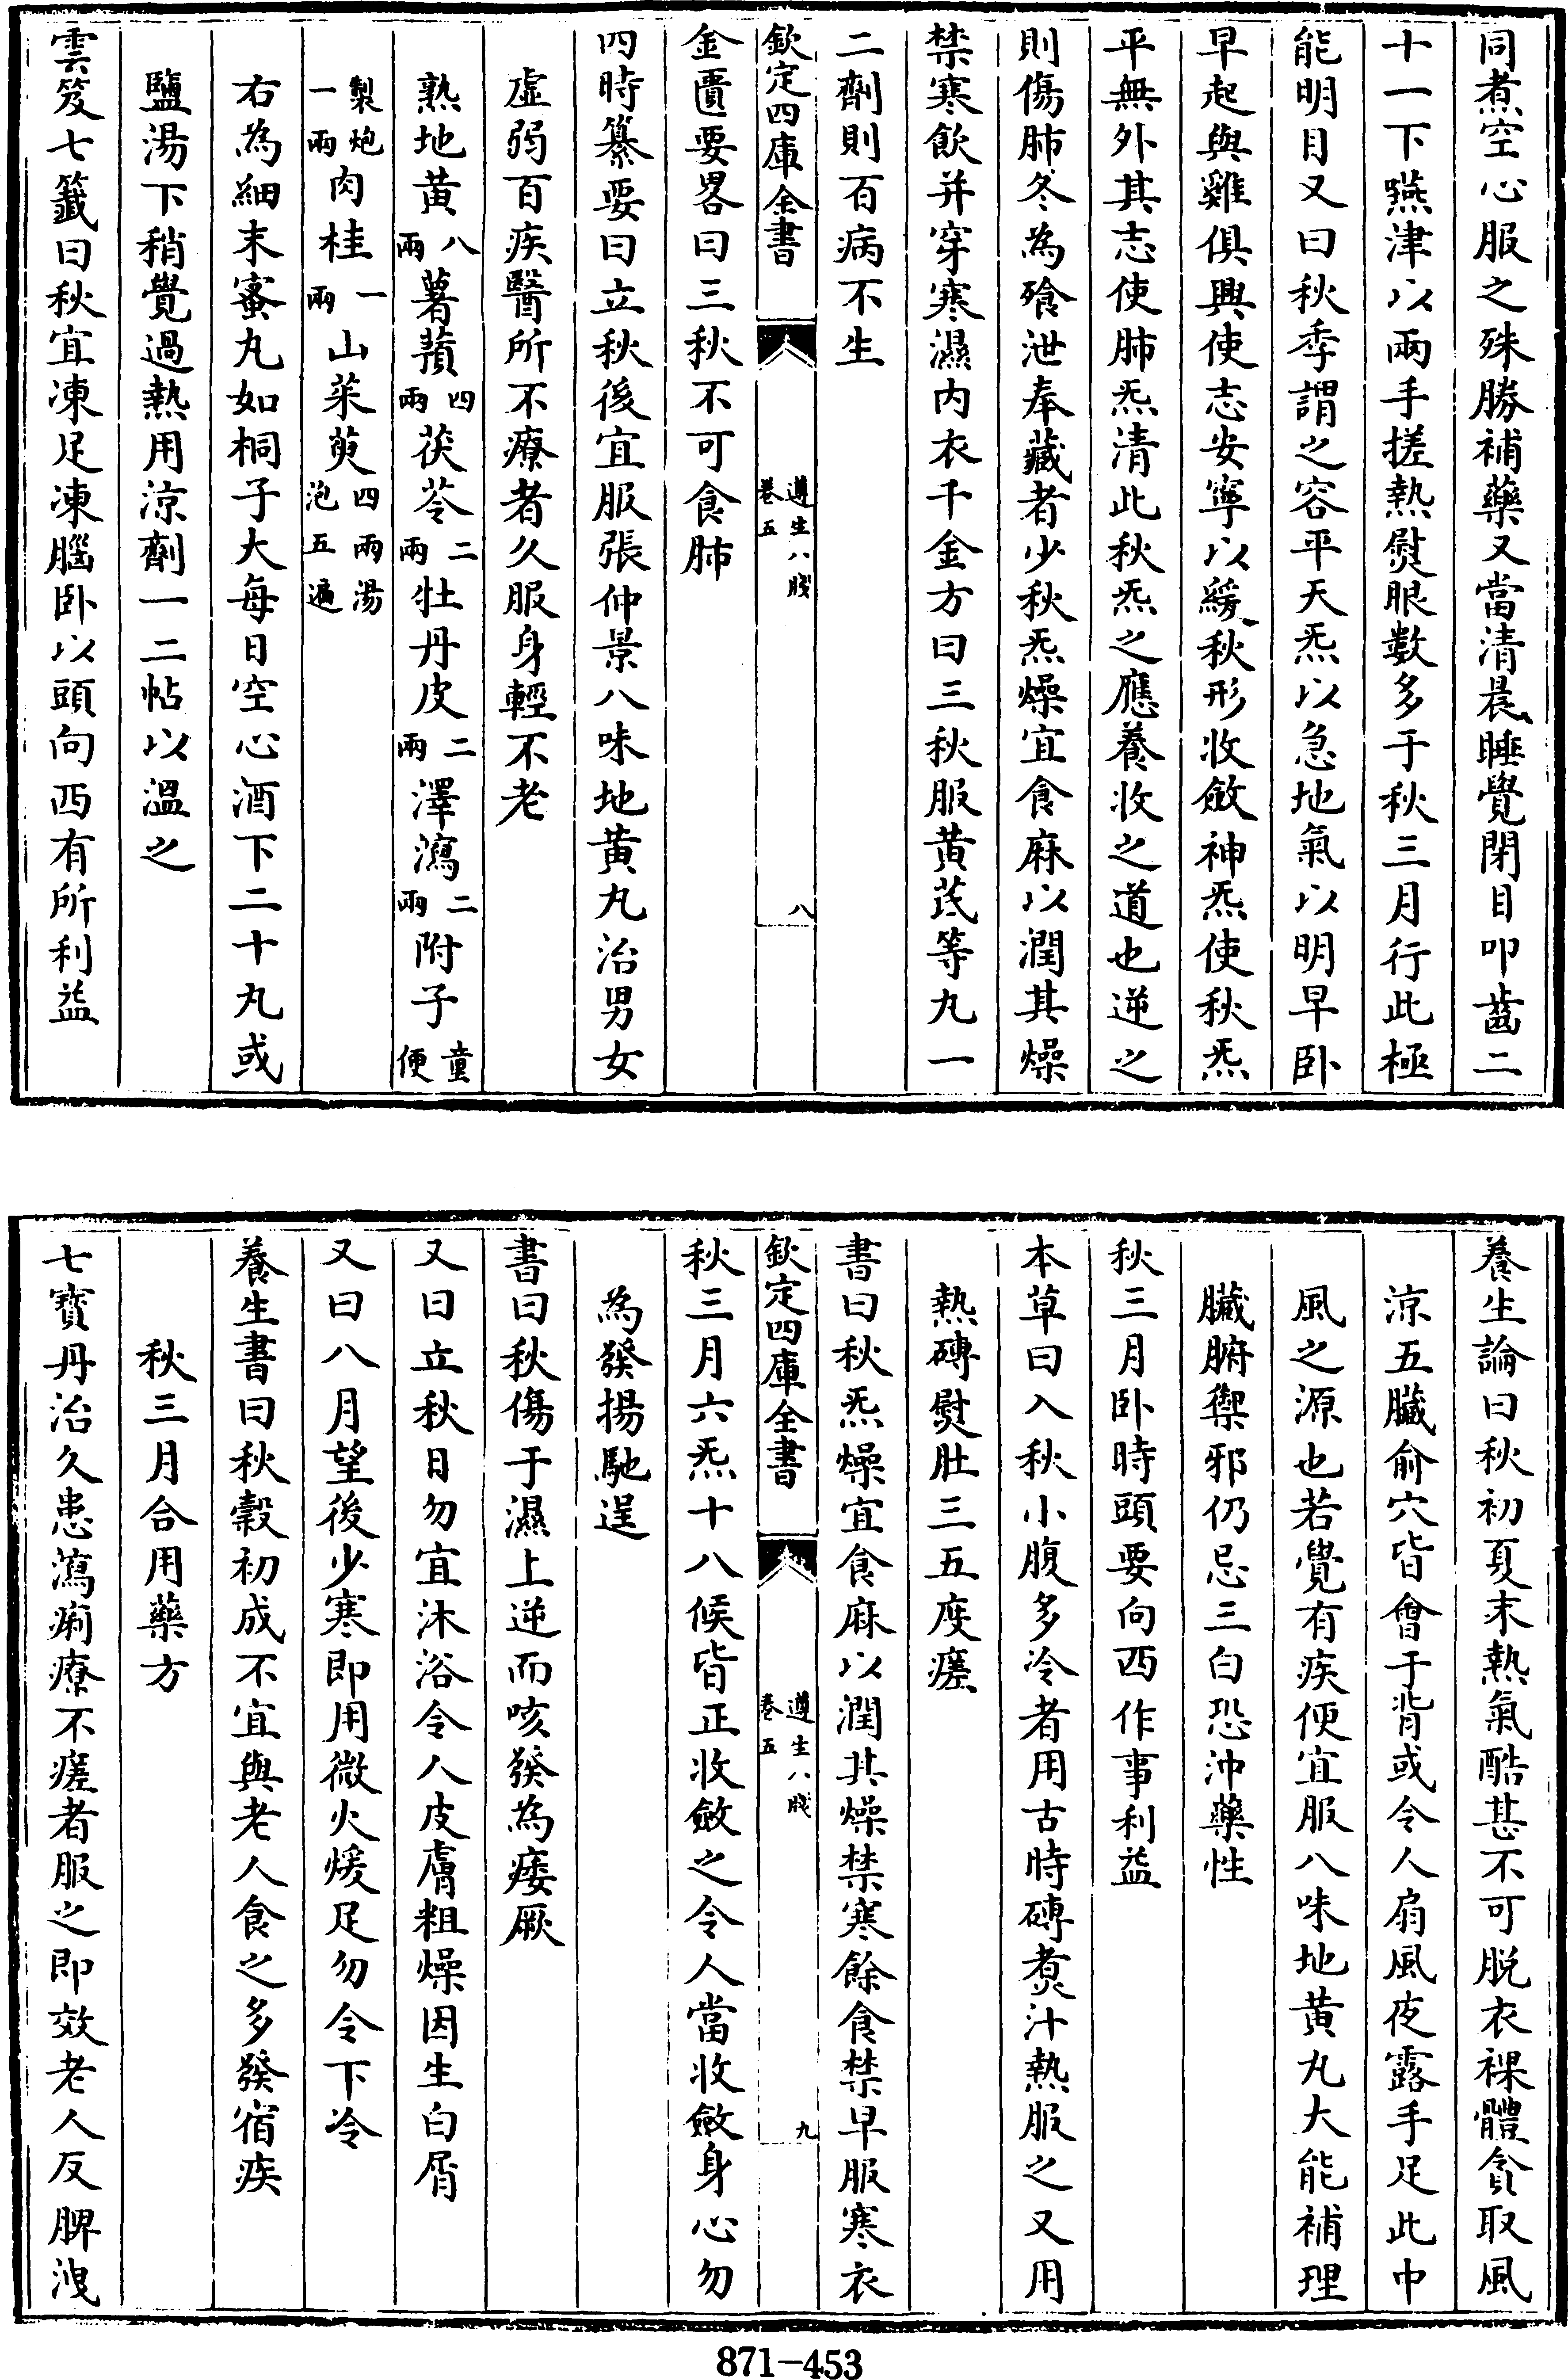 同煮空心服之殊勝補藥又當清晨睡覺閉目叩齒二
十一下嚥津以兩手搓熱熨眼數多于秋三月行此極
能明目又曰秋季謂之容平天炁以急地氣以明早卧
早起與雞俱興使志安寧以緩秋形收斂神炁使秋炁
平無外其志使肺炁清此秋炁之應養收之道也逆之
則傷肺冬為飱泄奉藏者少秋炁燥宜食麻以潤其燥
禁寒飲并穿寒濕内衣千金方曰三秋服黄芪等丸一
二劑則百病不生
欽定四庫全書 遵生八牋 卷五 八
金匱要畧曰三秋不可食肺
四時纂要曰立秋後宜服張仲景八味地黄丸治男女
虚弱百疾醫所不療者久服身輕不老
熟地黄八兩薯蕷四兩茯苓二兩牡丹皮二兩澤瀉二兩附子童便
製炮一兩肉桂一兩山茱萸四兩湯泡五遍
右為細末蜜丸如桐子大每日空心酒下二十丸或
鹽湯下稍覺過熱用涼劑一二帖以溫之
雲笈七籤曰秋宜凍足凍腦卧以頭向西有所利益
養生論曰秋初夏末熱氣酷甚不可脱衣裸體貪取風
涼五臟俞穴皆會于背或令人扇風夜露手足此中
風之源也若覺有疾便宜服八味地黄丸大能補理
臟腑禦邪仍忌三白恐沖藥性
秋三月卧時頭要向西作事利益
本草曰入秋小腹多冷者用古時磚煮汁熱服之又用
熱磚熨肚三五度瘥
書曰秋炁燥宜食麻以潤其燥禁寒餘食禁早服寒衣
欽定四庫全書 遵生八牋 卷五 九
秋三月六炁十八候皆正收斂之令人當收斂身心勿
為發揚馳逞
書曰秋傷于濕上逆而咳發為痿厥
又曰立秋日勿宜沐浴令人皮膚粗燥因生白屑
又曰八月望後少寒即用微火煖足勿令下冷
養生書曰秋穀初成不宜與老人食之多發宿疾
秋三月合用藥方
七寶丹治久患瀉痢療不瘥者服之即效老人反脾洩
871-453